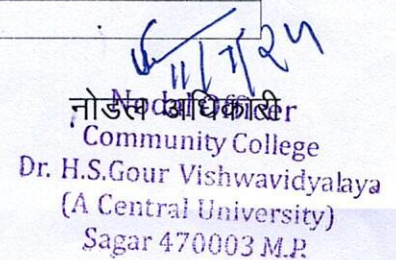 11/7/24
नोडल अधिकारी
Nodal Officer
Community College
Dr. H.S.Gour Vishwavidyalaya
(A Central University)
Sagar 470003 M.P.